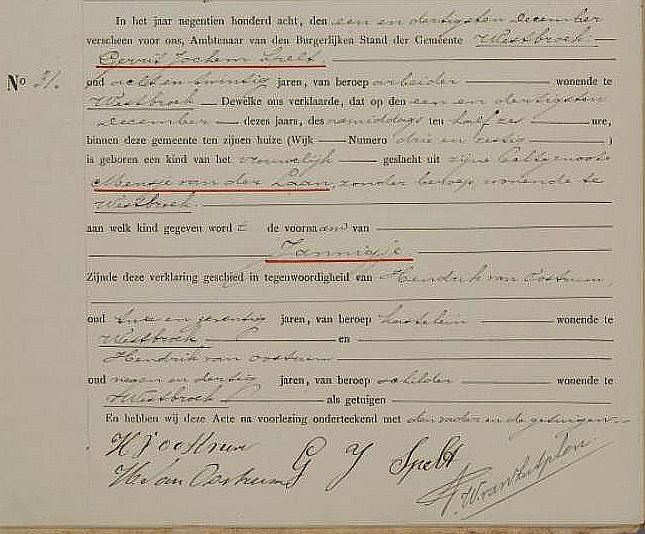 In het jaar negentien honderd acht, den een en dertigsten December
verscheen voor ons, Ambtenaar van den Burgerlijken Stand der Gemeente Westbroek
Gerrit Jochem Spelt
No 31. oud acht en twintig jaren, van beroep arbeider wonende te
Westbroek Dewelke ons verklaarde, dat op den een en dertigsten
December dezes jaars, des namiddags ten half zes ure,
binnen deze gemeente ten zijnen huize (Wijk Numero drie en zestig )
is geboren een kind van het vrouwelijk geslacht uit zijne Echtgenoote
van der Laan, zonder beroep wonende te
Westbroek.
aan welk kind gegeven word t de voornaam van
Jannigje
Zijnde deze verklaring geschied in tegenwoordigheid van Hendrik van Oostrum,
oud twee en zeventig jaren, van beroep kastelein wonende te
Westbroek, en
Hendrik van Oostrum
oud negen en dertig jaren, van beroep schilder wonende te
Westbroek als getuigen
En hebben wij deze Acte na voorlezing onderteekend met den vader en de getuigen.
H V Oostrum
H. Van Oostrum G J Spelt